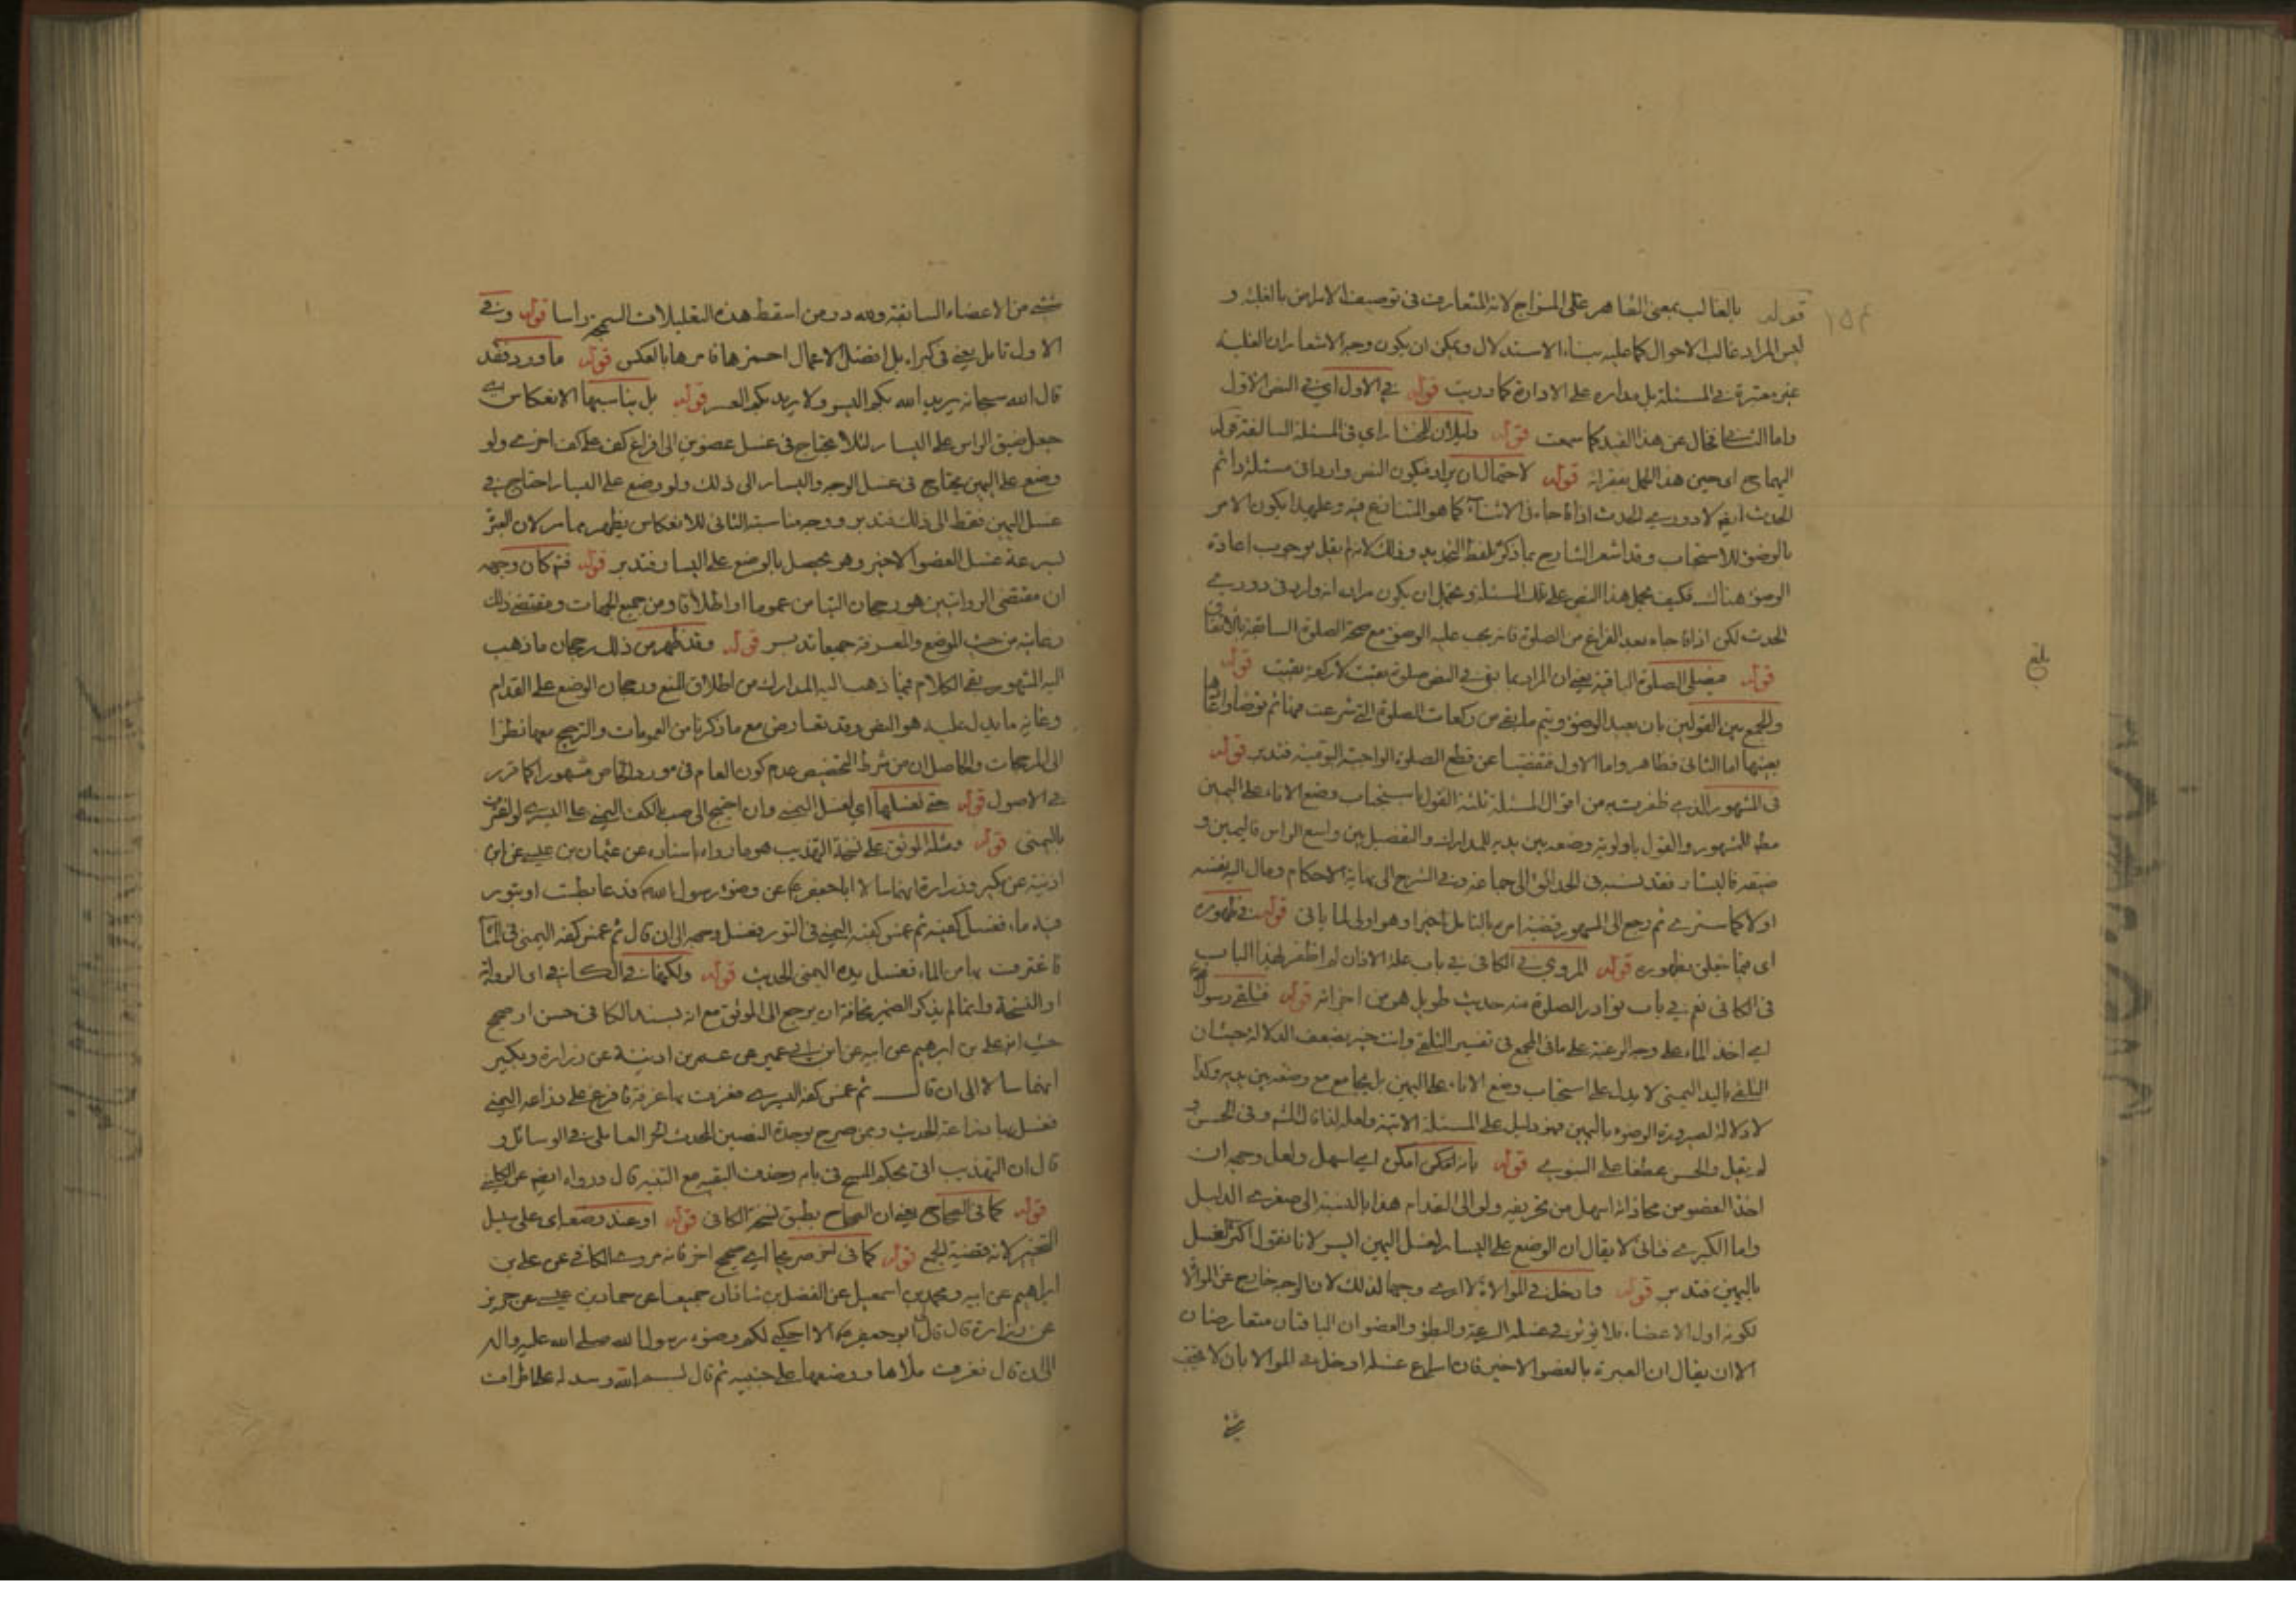 قوله بالغالب بمعنى القاهر على المزاج لانه المتعارف فى توصيف الامراض بالغلبة و
ليس المراد غالب الاحوال كما عليه بناء الاستدلال ويمكن ان يكون وجه الاشعار ان الغلبة
غير معتبرة فى المسئلة بل مداره على الارادة كما دريت قوله فى الاول اي فى النص الاول
واما الثانى فخال عن هذا القيد كما سمعت قوله دليلان للمختار اي فى المسئلة السالفة قوله
اليها اي حين هذا الحمل قوله لاحتمال ان يراد فيكون النص واردا فى مسئلة دائم
الحدث ايضا لا دوري الحدث اذا فاجاه فى الاثناء كما هو المتنازع فيه وعلى هذا يكون الامر
بالوضوء للاستحباب وقد اشعر الشارح بما ذكر بلفظ التجديد وذلك لانه لم يقل بوجوب اعادة
الوضوء هناك فكيف يحمل هذا النص على تلك المسئلة ويحتمل ان يكون مراده انه وارد فى دوري
الحدث لكن اذا فاجاه بعد الفراغ من الصلوة فانه يجب عليه الوضوء مع صحة الصلوة السابقة بالاتفاق
قوله فيصلى الصلوة الباقية يعنى ان المراد بما بقى فى النص صلوة بقيت لا ركعة بقيت قوله
والجمع بين القولين بان يعيد الوضوء ويتم ما بقى من ركعات الصلوة التى شرعت فيها ثم توضأ واعادها
بعينها اما الثانى فظاهر واما الاول فتفصيا عن قطع الصلوة الواجبة اليومية فتدبر قوله
فى المشهور الذي ظفرت به من اقوال المسئلة ثلثة القول باستحباب وضع الاناء على اليمين
مطلقا للمشهور والقول باولوية وضعه بين يديه للمدارك والتفصيل بين واسع الراس فاليمين و
ضيقه فاليسار فقد نسبه فى الحدائق الى جماعة وفى الشرح الى نهاية الاحكام ومال اليه بنفسه
اولا كما سترى ثم رجع الى المشهور قضية امره بالتامل اخيرا وهو اولى لما ياتى قوله فى طهوره
اى فيما يتعلق بطهوره قوله المروي فى الكافى فى باب علة الاذان لم اظفر بهذا الباب
فى الكافى نعم فى باب نوادر الصلوة منه حديث طويل هو من اجزائه قوله فتلقى رسول الله
اي اخذ الماء على وجه الرغبة على ما فى المجمع فى تفسير التلقى وانت خبير بضعف الدلالة حيث ان
التلقى باليد اليمنى لا يدل على استحباب وضع الاناء على اليمين بل يجامع مع وضعه بين يديه وكذا
لا دلالة لصيرورة الوضوء باليمين فهو دليل على المسئلة الاتية ولعله لذا قال الشارح وفى الحسن و
لم يقل والحسن عطفا على النبوي قوله بانه امكن امكن اي اسهل ولعل وجهه ان
اخذ العضو من محاذاته اسهل من تحريفه ولو الى القدام هذا بالنسبة الى صغرى الدليل
واما الكبرى فتاتى لا يقال ان الوضع على اليسار لغسل اليمين ايسر لانا نقول اكثر الغسل
باليمين فتدبر قوله وادخل فى الموالاة لا ارى وجها لذلك لان الوجه خارج عن الموالاة
لكونه اول الاعضاء فلا يؤثر فى غسله السرعة والبطؤ والعضوان الباقيان متعارضان
الا ان يقال ان العبرة بالعضو الاخير فان اسراع غسله ادخل فى الموالاة بان لا يجف
شئ
بلغ
شئ من الاعضاء السابقة ولله در من اسقط هذه التعليلات راسا قوله وفى
الاول تامل يعنى فى كبراه بل افضل الاعمال احمزها فامرها بالعكس قوله ما ورد فقد
قال الله سبحانه يريد الله بكم اليسر ولا يريد بكم العسر قوله بل يناسبها الانعكاس اى
جعل ضيق الراس على اليسار لئلا يحتاج فى غسل عضوين الى افراغ كف على كف اخرى ولو
وضع على اليمين يحتاج فى غسل الوجه واليسار الى ذلك ولو وضع على اليسار احتاج فى
غسل اليمين فقط الى ذلك فتدبر ووجه مناسبته الثانى للانعكاس يظهر مما مر لان العبرة
بسرعة غسل العضو الاخير وهو يحصل بالوضع على اليسار فتدبر قوله فتم كان وجهه
ان مقتضى الروايتين هو رجحان التيامن عموما او اطلاقا ومن جميع الجهات ومقتضى ذلك
رعايته من حيث الموضع والمغرفة جميعا تدبر قوله وقد ظهر من ذلك رجحان ما ذهب
اليه المشهور بقى الكلام فيما ذهب اليه المدارك من اطلاق المنع ورجحان الوضع على القدام
وغاية ما يدل عليه هو النص وقد تعارض مع ما ذكرنا من العمومات والترجيح معها نظرا
الى المرجحات والحاصل ان من شرط التخصيص عدم كون العام فى مورد الخاص مشهورا كما قرر
فى الاصول قوله حتى لغسلها اي لغسل اليمنى وان احتيج الى صب الكف اليمنى على اليسرى لو اغترف
باليمنى قوله ومثله الموثق على نسخة التهذيب هو ما رواه باسناده عن عثمان بن عيسى عن ابن
اذينة عن بكير وزرارة انهما سالا ابا جعفر ع عن وضوء رسول الله ص فدعا بطست او بتور
فيه ماء فغسل كفيه ثم غمس كفه اليمنى فى التور فغسل وجهه الى ان قال ثم غمس كفه اليمنى فى الماء
فاغترف بها من الماء فغسل يده اليمنى الحديث قوله ولكنها فى الكافى اى الرواية
او النسخة وانما لم يذكر الضمير مخافة ان يرجع الى الموثق مع انه بسند الكافى حسن او صحيح
حيث انه على بن ابرهيم عن ابيه عن ابن ابى عمير عن عمر بن اذينة عن زرارة وبكير
انهما سالا الى ان قال ثم غمس كفه اليسرى فغرف بها غرفة فافرغ على ذراعه اليمنى
فغسل بها ذراعه الحديث وممن صرح بوحدة النصين المحدث الحر العاملى فى الوسائل و
قال ان التهذيب اتى بحكم المسح فى بابه وحذف البقية مع التنبيه قال ورواه ايضا عن الكلينى
قوله كما فى الصحاح يعنى ان الصحاح بطبق نسخة الكافى قوله او عند وضعه اى على سبيل
التخيير لانه قضية الجمع قوله كما فى اخر صريحا اي صحيح اخر فانه مروي الكافى عن على بن
ابراهيم عن ابيه ومحمد بن اسمعيل عن الفضل بن شاذان جميعا عن حماد بن عيسى عن حريز
عن زرارة قال قال ابو جعفر ع الا احكى لكم وضوء رسول الله صلى الله عليه واله
الى ان قال فغرف ملأها ووضعها على جبينه ثم قال بسم الله وسدله على اطراف